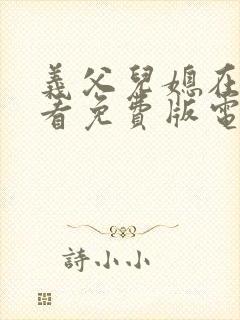 義父兒媳在
看免費版電
詩小小